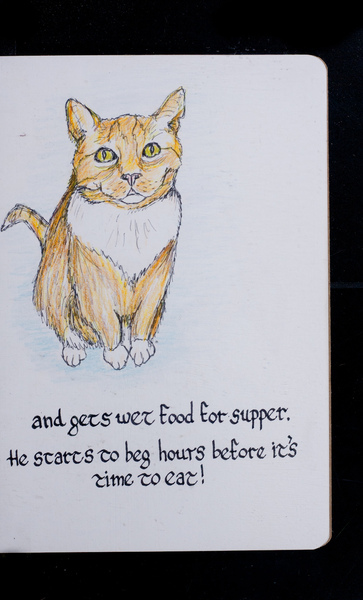 and gets wet food for supper.
He starts to beg hours before it's
time to eat!